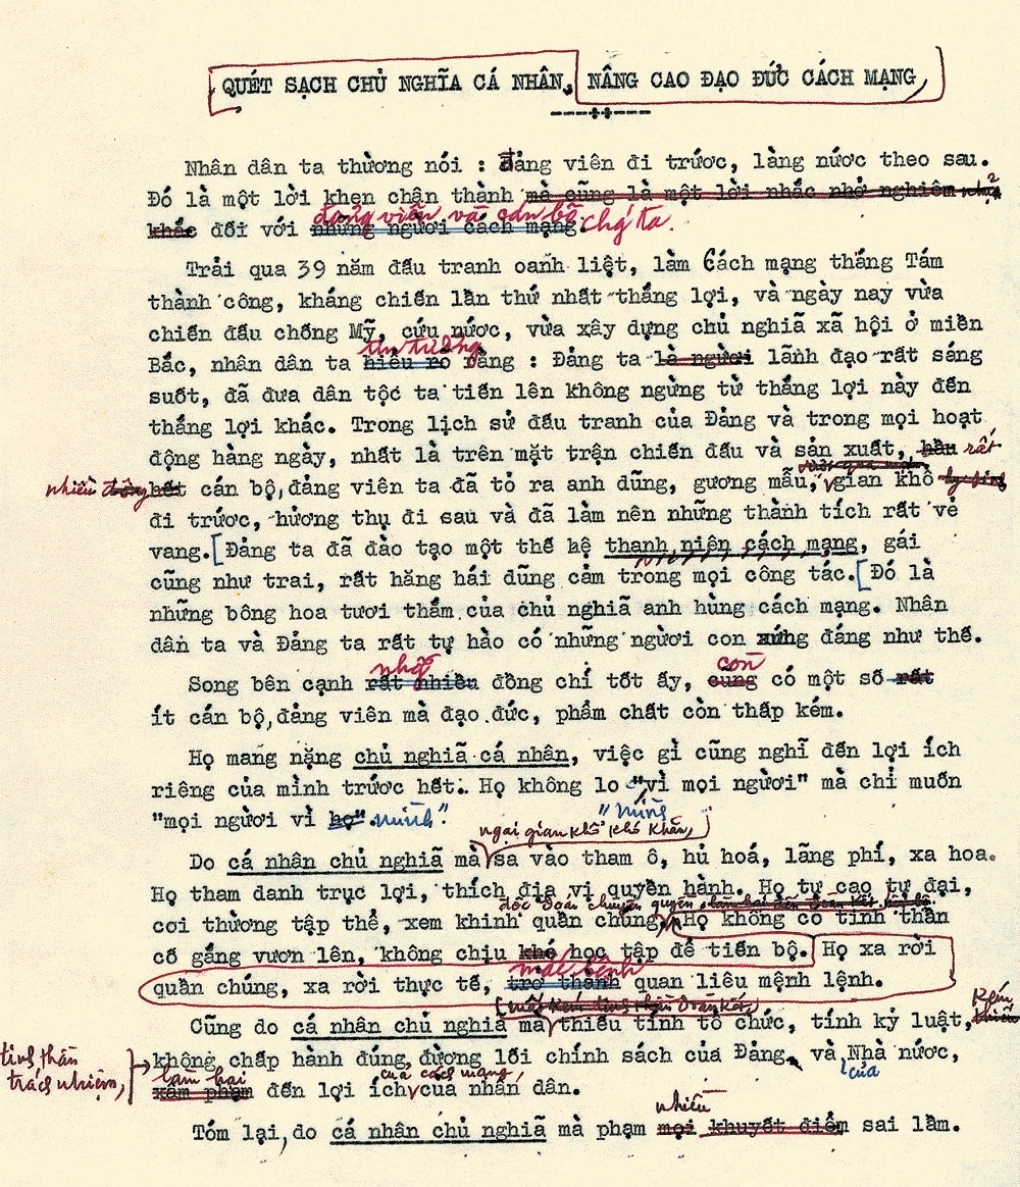 QUÉT SẠCH CHỦ NGHĨA CÁ NHÂN, NÂNG CAO ĐẠO ĐỨC CÁCH MẠNG
Nhân dân ta thường nói : Đảng viên đi trước, làng nước theo sau.
Đó là một lời khen chân thành mà cũng là một lời nhắc nhở nghiêm
đảng viên và cán bộ chúng ta.
khắc đối với những người cách mạng.
Trải qua 39 năm đấu tranh oanh liệt, làm Cách mạng tháng Tám
thành công, kháng chiến lần thứ nhất thắng lợi, và ngày nay vừa
chiến đấu chống Mỹ, cứu nước, vừa xây dựng chủ nghiã xã hội ở miền
tin tưởng
Bắc, nhân dân ta hiểu rõ rằng : Đảng ta là người lãnh đạo rất sáng
suốt, đã đưa dân tộc ta tiến lên không ngừng từ thắng lợi này đến
thắng lợi khác. Trong lịch sử đấu tranh của Đảng và trong mọi hoạt
động hàng ngày, nhất là trên mặt trận chiến đấu và sản xuất, hầu rất
nhiều hết cán bộ, đảng viên ta đã tỏ ra anh dũng, gương mẫu, gian khổ
đi trước, hưởng thụ đi sau và đã làm nên những thành tích rất vẻ
vang. [Đảng ta đã đào tạo một thế hệ thanh niên cách mạng, gái
cũng như trai, rất hăng hái dũng cảm trong mọi công tác. [Đó là
những bông hoa tươi thắm của chủ nghiã anh hùng cách mạng. Nhân
dân ta và Đảng ta rất tự hào có những người con xứng đáng như thế.
như còn
Song bên cạnh rất nhiều đồng chí tốt ấy, cũng có một số rất
ít cán bộ, đảng viên mà đạo đức, phẩm chất còn thấp kém.
Họ mang nặng chủ nghiã cá nhân, việc gì cũng nghĩ đến lợi ích
riêng của mình trước hết. Họ không lo "vì mọi người" mà chỉ muốn
"mình
"mọi người vì họ". mình".
ngại gian khổ khó khăn,
Do cá nhân chủ nghiã mà sa vào tham ô, hủ hoá, lãng phí, xa hoa.
Họ tham danh trục lợi, thích địa vị quyền hành. Họ tự cao tự đại,
độc đoán chuyên quyền,
coi thường tập thể, xem khinh quần chúng, Họ không có tinh thần
cố gắng vươn lên, không chịu khó học tập để tiến bộ. Họ xa rời
mắc bệnh
quần chúng, xa rời thực tế, trở thành quan liêu mệnh lệnh.
kém
Cũng do cá nhân chủ nghiã mà thiếu tính tổ chức, tính kỷ luật,
tinh thần
trách nhiệm, không chấp hành đúng đường lối chính sách của Đảng và Nhà nước,
làm hại của cách mạng, của
xâm phạm đến lợi ích của nhân dân.
nhiều
Tóm lại, do cá nhân chủ nghiã mà phạm mọi khuyết điểm sai lầm.